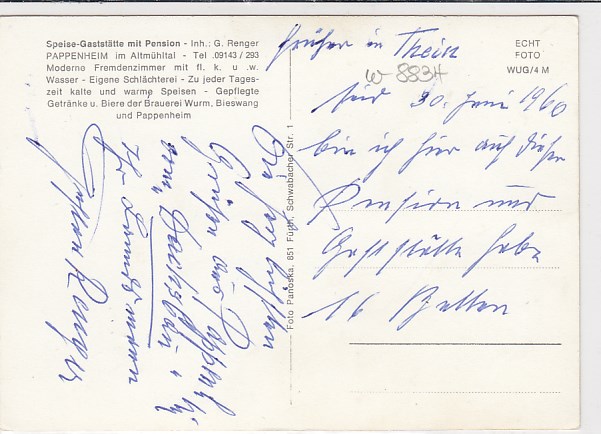 Speise-Gaststätte mit Pension - Inh.: G. Renger
PAPPENHEIM im Altmühltal - Tel. 09143 / 293
Moderno Fremdenzimmer mit fl. k. u. w.
Wasser - Eigene Schlächterei - Zu jeder Tages-
zeit kalte und warme Speisen - Gepflegte
Getränke u. Biere der Brauerei Wurm, Bieswang
und Pappenheim
Die herzlichsten
Grüßen aus Pappenheim
vom
Ihr
Gustav Renger
Foto Panoska, 851 Fürth, Schwabacher Str. 1
ECHT
FOTO
WUG/4 M
früher in Thein
W-8834
seid 30. Juni 1960
bin ich hier auf dieser
Pension und
Gaststätte habe
16 Betten